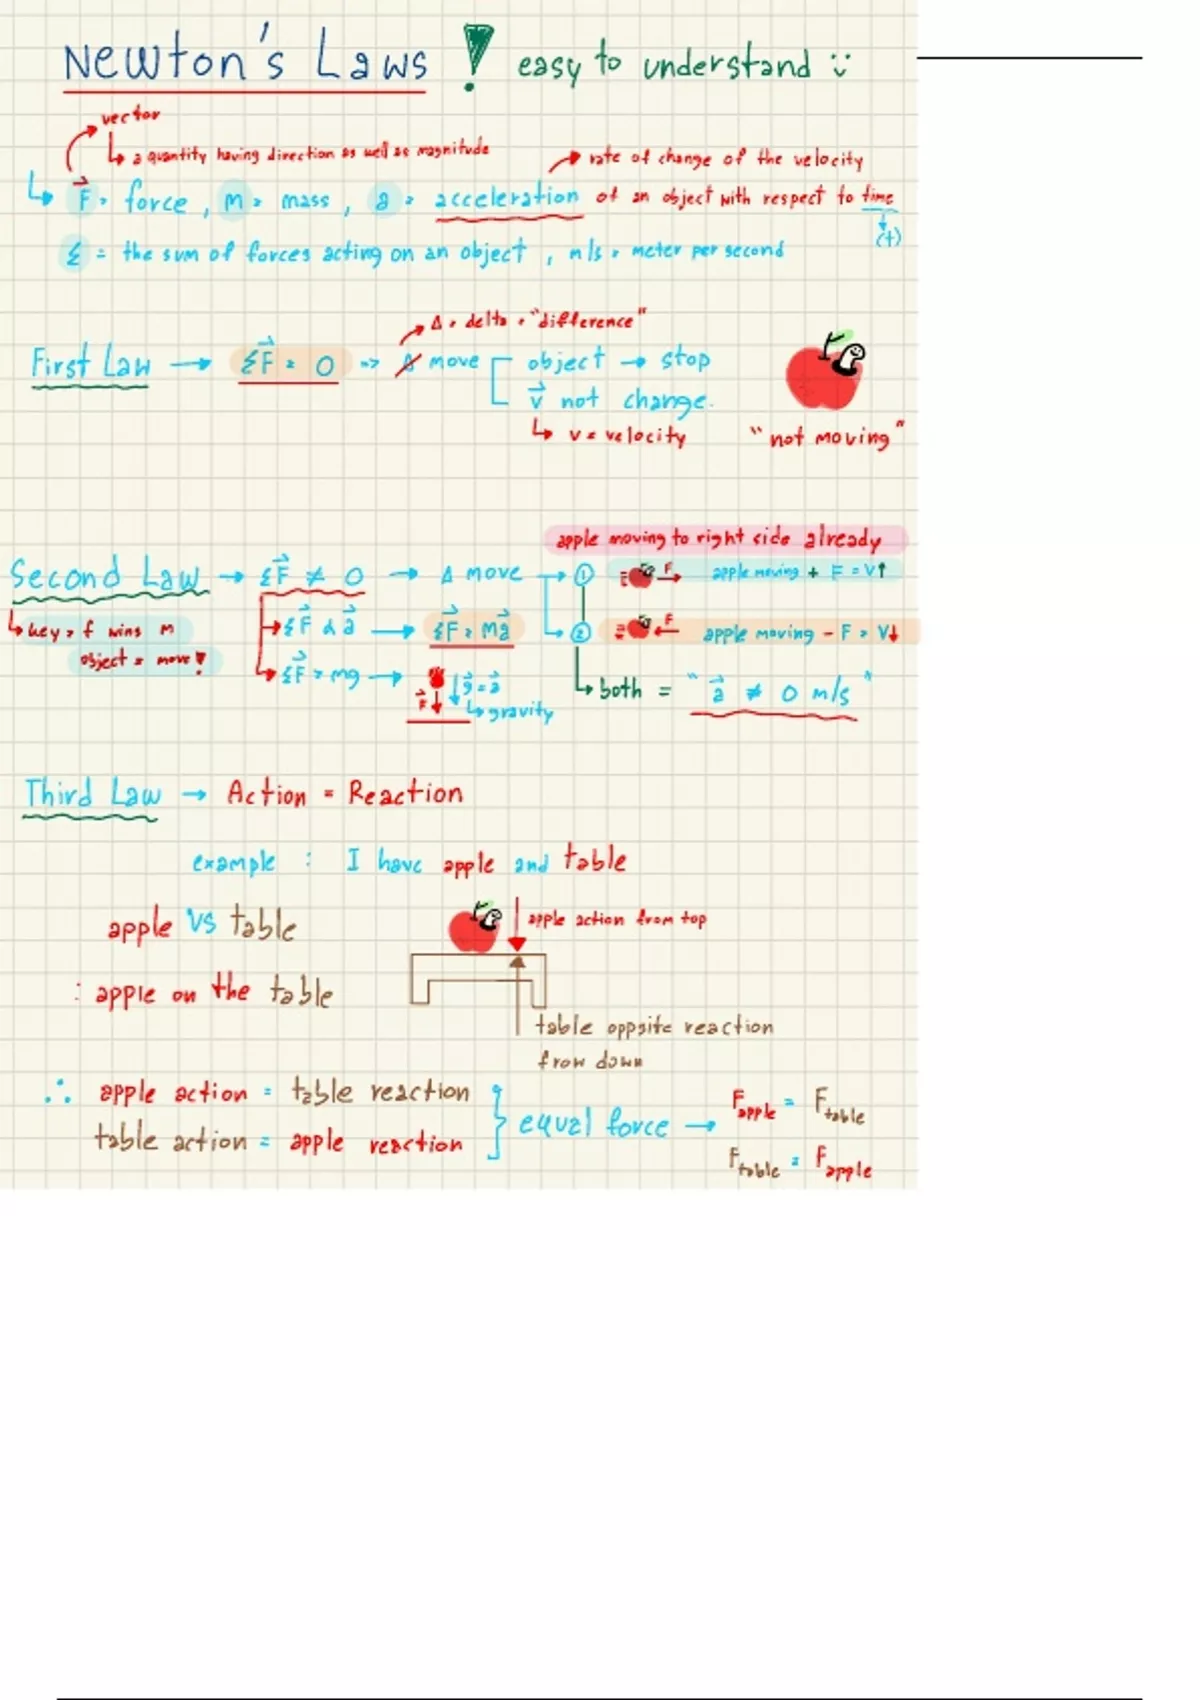 Newton's Laws ! easy to understand
vector
↳ a quantity having direction as well as magnitude
rate of change of the velocity
↳ F⃗ = force , m = mass , a = acceleration of an object with respect to time
(t)
Σ = the sum of forces acting on an object , m/s = meter per second
Δ = delta = "difference"
First Law → ΣF⃗ = 0 => Δ move object → stop
v⃗ not change.
↳ v = velocity
"not moving"
apple moving to right side already
Second Law → ΣF⃗ ≠ 0 → Δ move → ① F → apple moving + F = V↑
↳ key = f wins m
object = move !
→ ΣF⃗ α a⃗ → ΣF⃗ = ma⃗
② F ← apple moving - F = V↓
↳ ΣF⃗ = mg → F⃗ ↓ g⃗ = a⃗
↳ gravity
↳ both = "a⃗ ≠ 0 m/s"
Third Law → Action = Reaction
example : I have apple and table
apple vs table
apple action from top
: apple on the table
table oppsite reaction
from down
∴ apple action = table reaction
table action = apple reaction
} equal force →
Fapple = Ftable
Ftable = Fapple